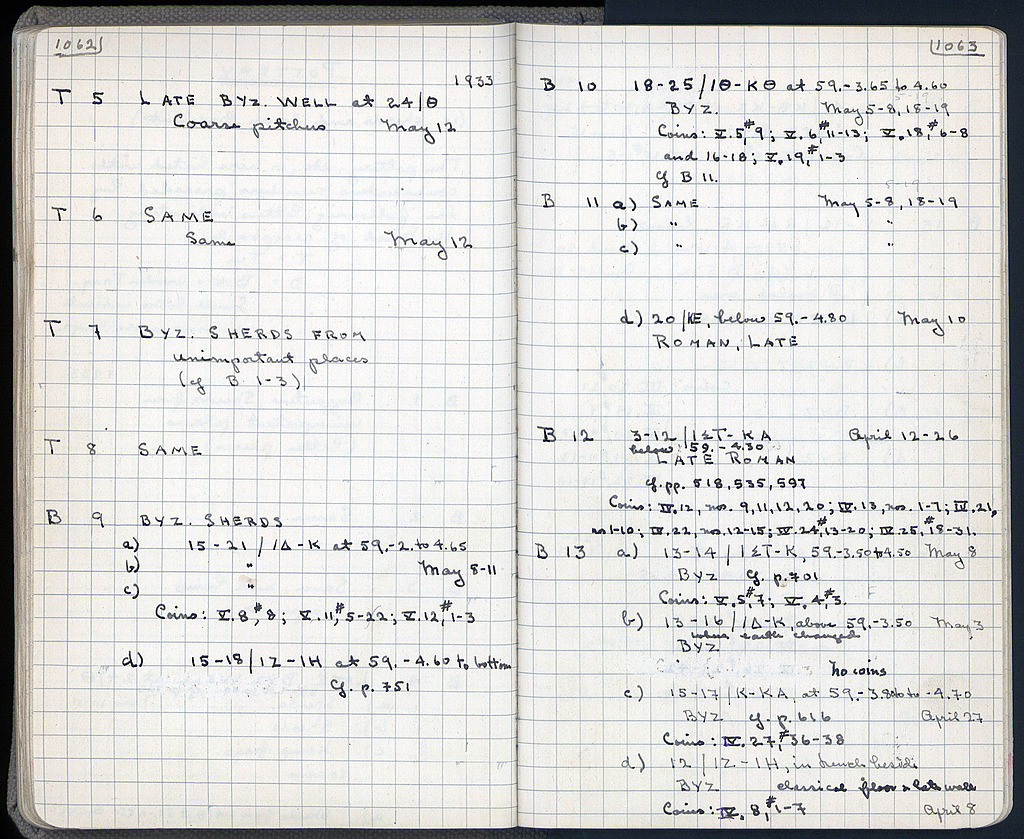 1062
1933
T 5 LATE BYZ. WELL at 24/Θ
Coarse pitchers May 12
T 6 SAME
Same May 12
T 7 BYZ. SHERDS FROM
unimportant places
(cf B 1-3)
T 8 SAME
B 9 BYZ. SHERDS
a) 15-21/ΙΔ-Κ at 59.-2. to 4.65
b) " May 8-11
c) "
Coins: V.8, #8; V.11, #5-22; V.12, #1-3
d) 15-18/ΙΖ-ΙΗ at 59.-4.60 to bottom
Cf. p. 751
1063
B 10 18-25/ΙΘ-ΚΘ at 59.-3.65 to 4.60
BYZ. May 5-8, 18-19
Coins: V.5, #9; V.6, #11-13; V.18, #6-8
and 16-18; V.19, #1-3
cf B 11.
B 11 a) SAME May 5-8, 18-19
b) " "
c) " "
d) 20/ΚΕ, below 59.-4.80 May 10
ROMAN, LATE
B 12 3-12/ΙΣΤ-ΚΑ April 12-26
below 59.-4.30
LATE ROMAN
Cf. pp. 518, 535, 597
Coins: IV.12, nos. 9, 11, 12, 20; IV.13, nos. 1-7; IV.21,
nos 1-10; IV.22, nos. 12-15; IV.24, #13-20; IV.25, #18-31.
B 13 a) 13-14/ΙΣΤ-Κ, 59.-3.50 to 4.50 May 8
BYZ Cf. p. 701
Coins: V.5, #7; V.4, #3.
b) 13-16/ΙΔ-Κ, above 59.-3.50 May 3
where earth changed
BYZ
no coins
c) 15-17/Κ-ΚΑ, at 59.-3.80 to -4.70
BYZ cf. p. 616 April 27
Coins: IV. 27, #36-38
d) 12/ΙΖ-ΙΗ, in trench beside
BYZ classical floor & late walls
Coins: IV. 8, #1-7 April 8